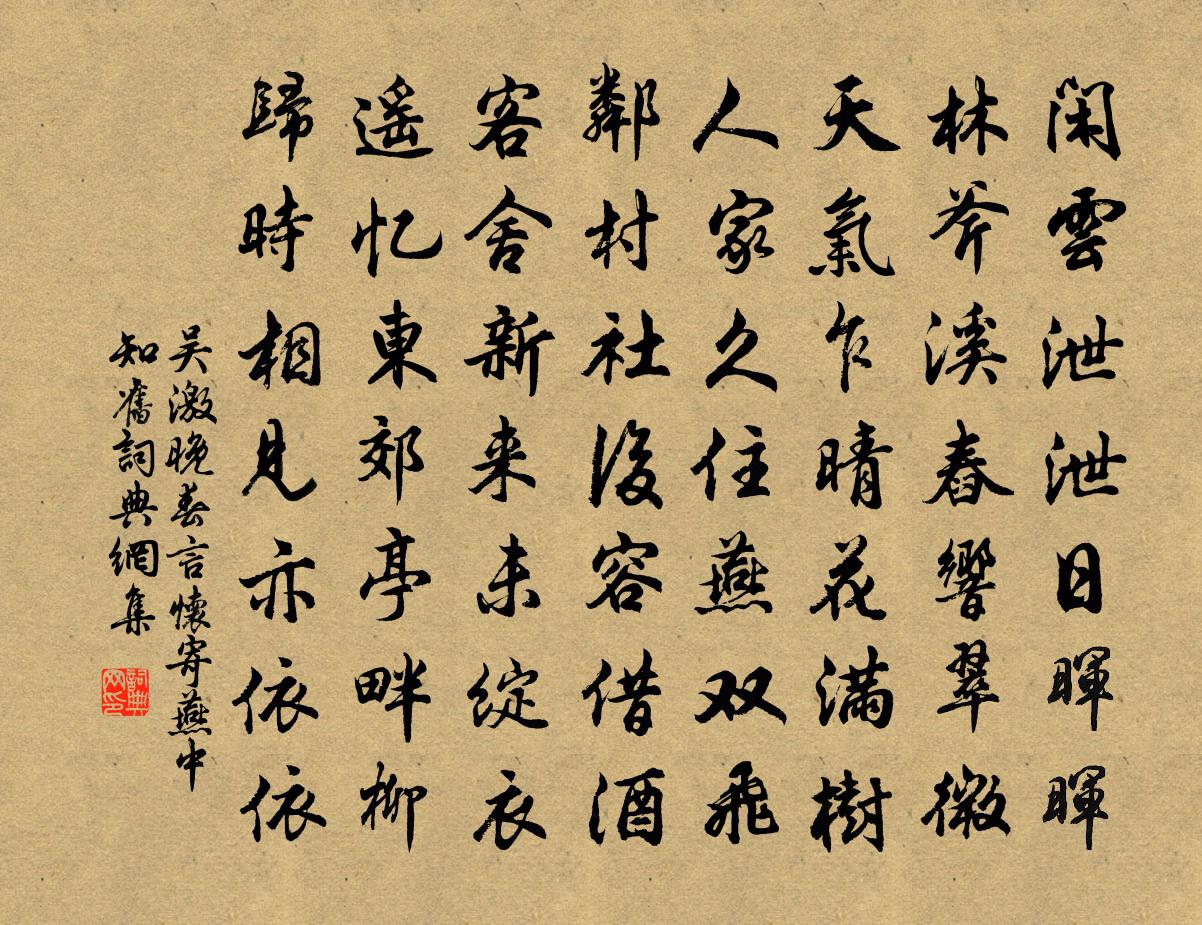 閑雲泄泄日暉暉
林斧溪舂響翠微
天氣乍晴花滿樹
人家久住燕双飛
鄰村社後容借酒
客舍新来未綻衣
遥忆東郊亭畔柳
歸時相見亦依依
吴激晚春言懷寄燕中
知舊詞典網集
詞典網印